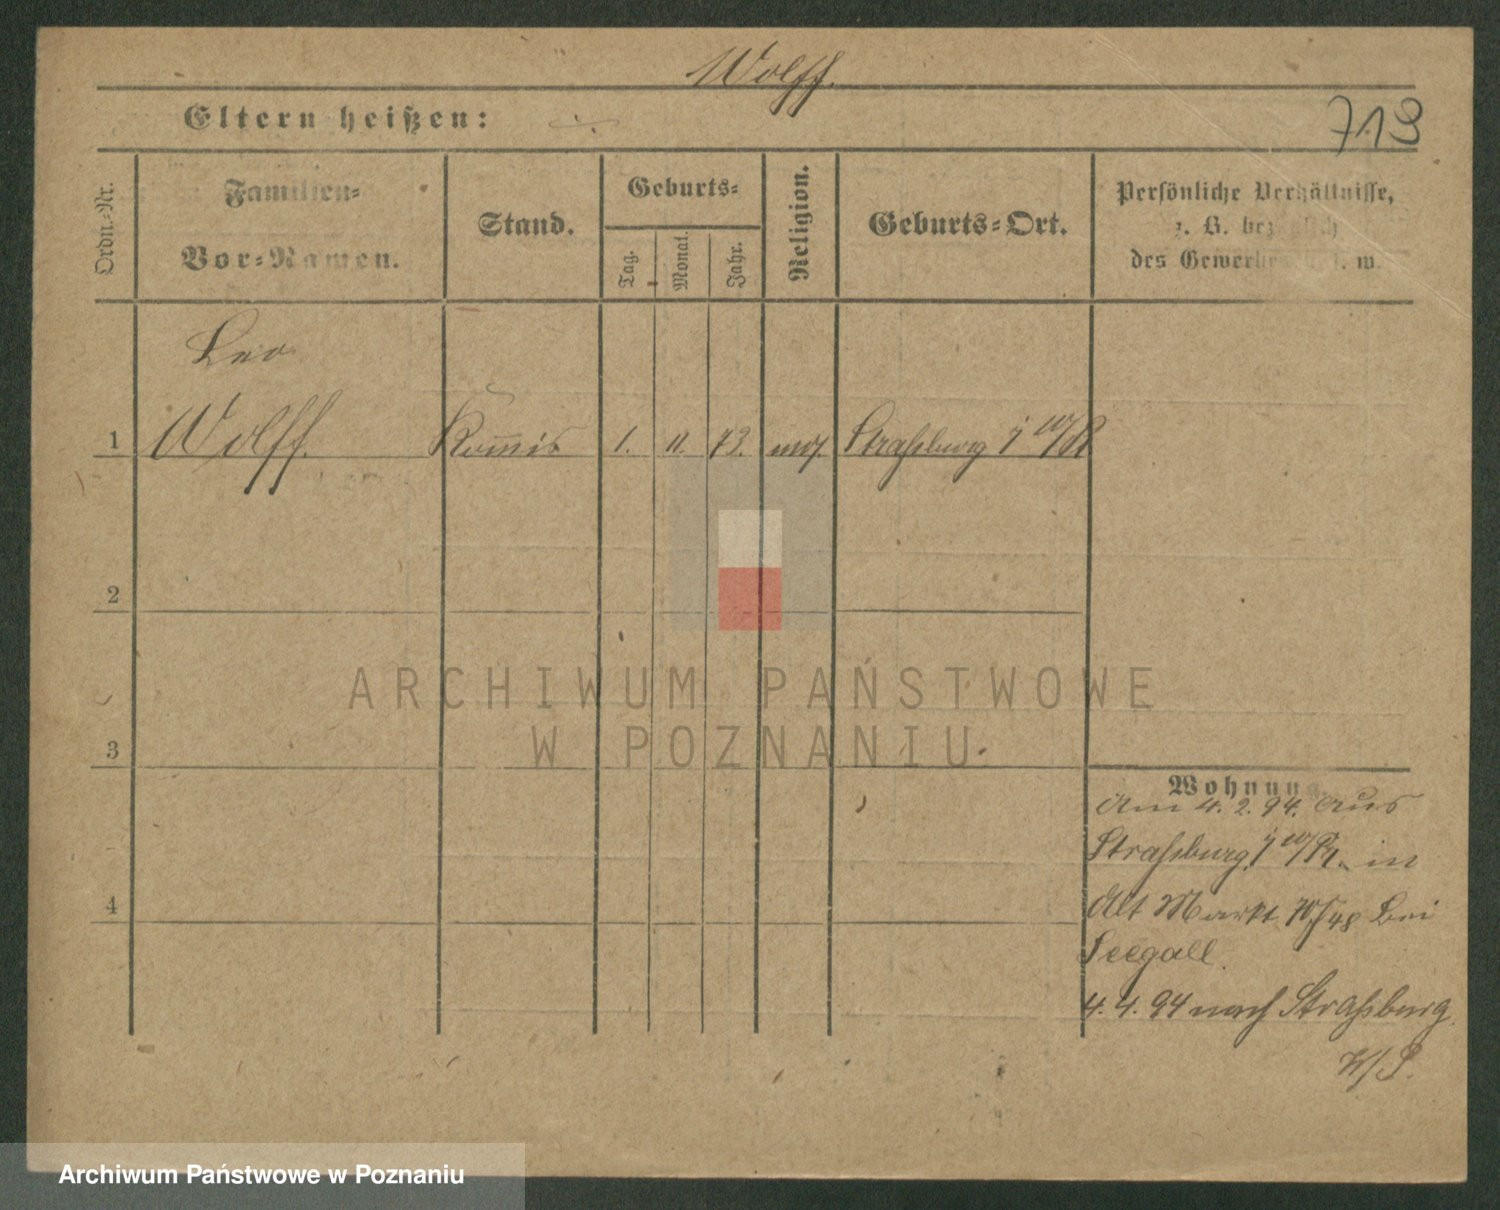 Wolff.
Eltern heißen: ÷
713
Ordn.-Nr.
Familien-
Vor-Namen.
Stand.
Geburts-
Tag.
Monat.
Jahr.
Religion.
Geburts-Ort.
Persönliche Verhältnisse,
z. B. bezüglich
des Gewerbes u. s. w.
Leo
1 Wolff. Kommis 1. 11. 73. mos Straßburg i W/Pr
2
3
4
ARCHIWUM PAŃSTWOWE
W POZNANIU
Wohnung.
Am 4. 2. 94. aus
Straßburg i W/Pr. in
Alt Markt 47/48 bei
Seegall.
4. 4. 94 nach Straßburg.
W/P.
Archiwum Państwowe w Poznaniu